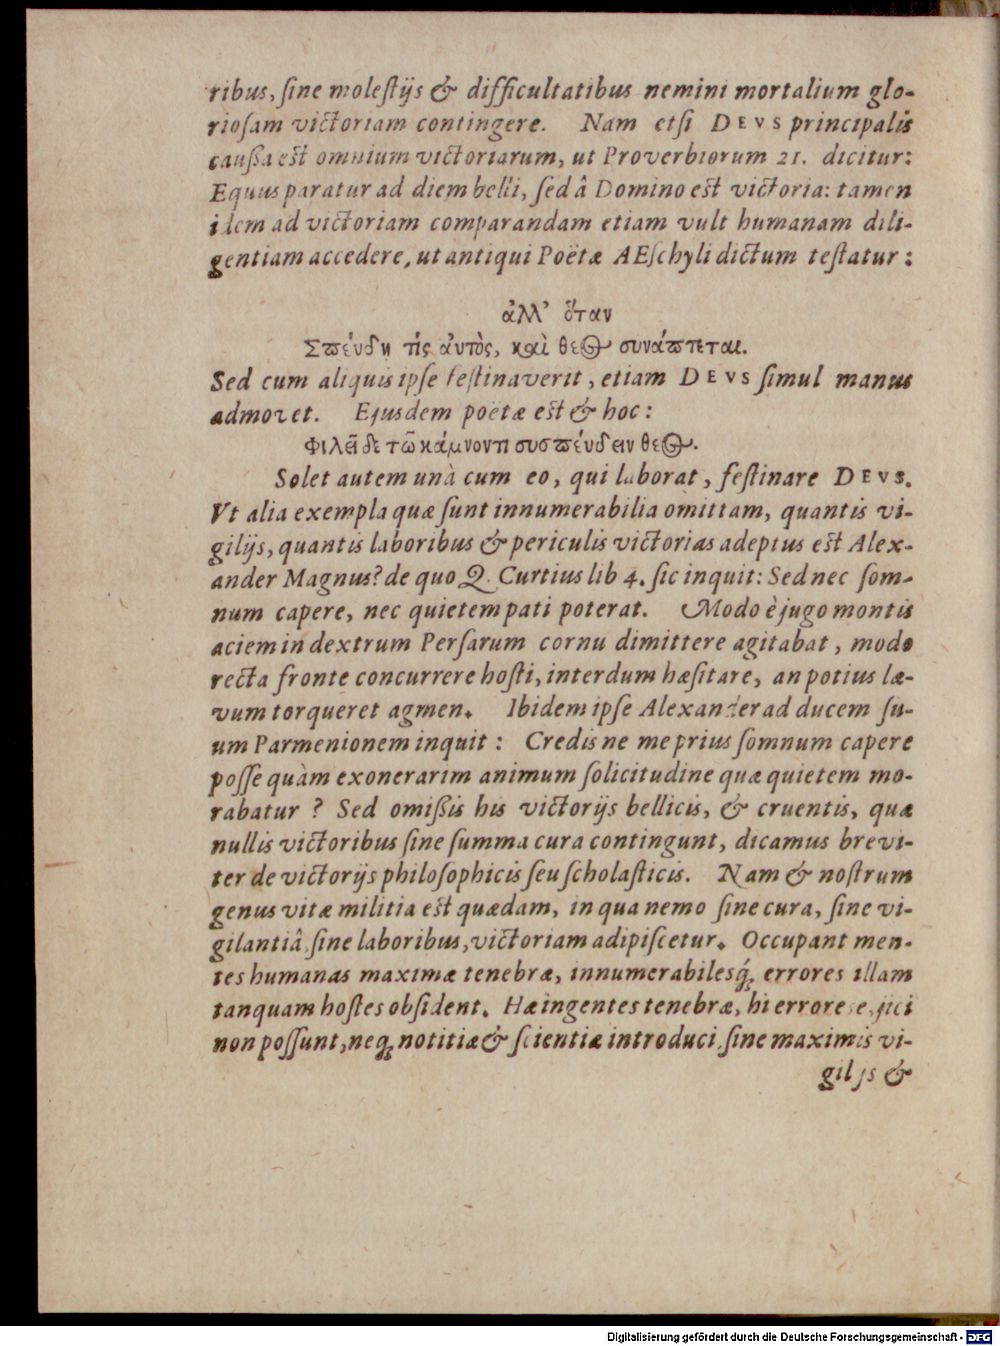 ribus, ſine moleſtijs & difficultatibus nemini mortalium glo-
rioſam victoriam contingere. Nam etſi DEVS principalis
cauſſa est omnium victoriarum, ut Proverbiorum 21. dicitur:
Equus paratur ad diem belli, ſed â Domino est victoria: tamen
idem ad victoriam comparandam etiam vult humanam dili-
gentiam accedere, ut antiqui Poëtæ AEſchyli dictum teſtatur:
ἀλλ' ὅταν
Σπεύδη τίς ἀυτὸς, καὶ θεὸς συνάπτεται.
Sed cum aliquis ipſe feſtinaverit, etiam DEVS ſimul manus
admovet. Ejusdem poëtæ est & hoc:
Φιλεῖ δε τῶ κάμνοντι συσπέυδειν θεὸς.
Solet autem unà cum eo, qui laborat, feſtinare DEVS.
Vt alia exempla quæ ſunt innumerabilia omittam, quantis vi-
gilijs, quantis laboribus & periculis victorias adeptus est Alex-
ander Magnus? de quo Q. Curtius lib 4. ſic inquit: Sed nec ſom-
num capere, nec quietem pati poterat. Modo è jugo montis
aciem in dextrum Perſarum cornu dimittere agitabat, modo
recta fronte concurrere hoſti, interdum hæſitare, an potius læ-
vum torqueret agmen. Ibidem ipſe Alexander ad ducem ſu-
um Parmenionem inquit: Credis ne me prius ſomnum capere
poſſe quàm exonerarim animum ſolicitudine quæ quietem mo-
rabatur? Sed omiſſis his victorijs bellicis, & cruentis, quæ
nullis victoribus ſine ſumma cura contingunt, dicamus brevi-
ter de victorijs philoſophicis ſeu ſcholaſticis. Nam & noſtrum
genus vitæ militia est quædam, in qua nemo ſine cura, ſine vi-
gilantiâ, ſine laboribus, victoriam adipiſcetur. Occupant men-
tes humanas maximæ tenebræ, innumerabilesq́; errores illam
tanquam hoſtes obſident. Hæ ingentes tenebræ, hi errores ejici
non poſſunt, neq; notitiæ & ſcientiæ introduci ſine maximis vi-
gilijs &
Digitalisierung gefördert durch die Deutsche Forschungsgemeinschaft - DFG